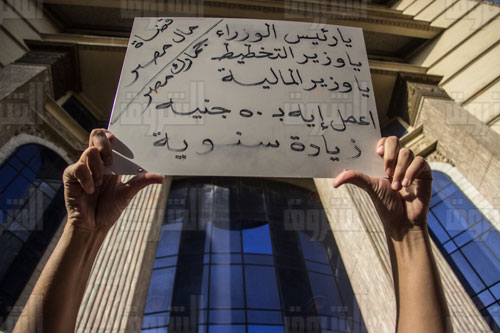 يارئيس الوزراء
ياوزير التخطيط
ياوزير المالية
اعمل إيه بـ ٥٠ جنيه
زيادة سنوية
عمال مصر
جمارك مصر
الشروق